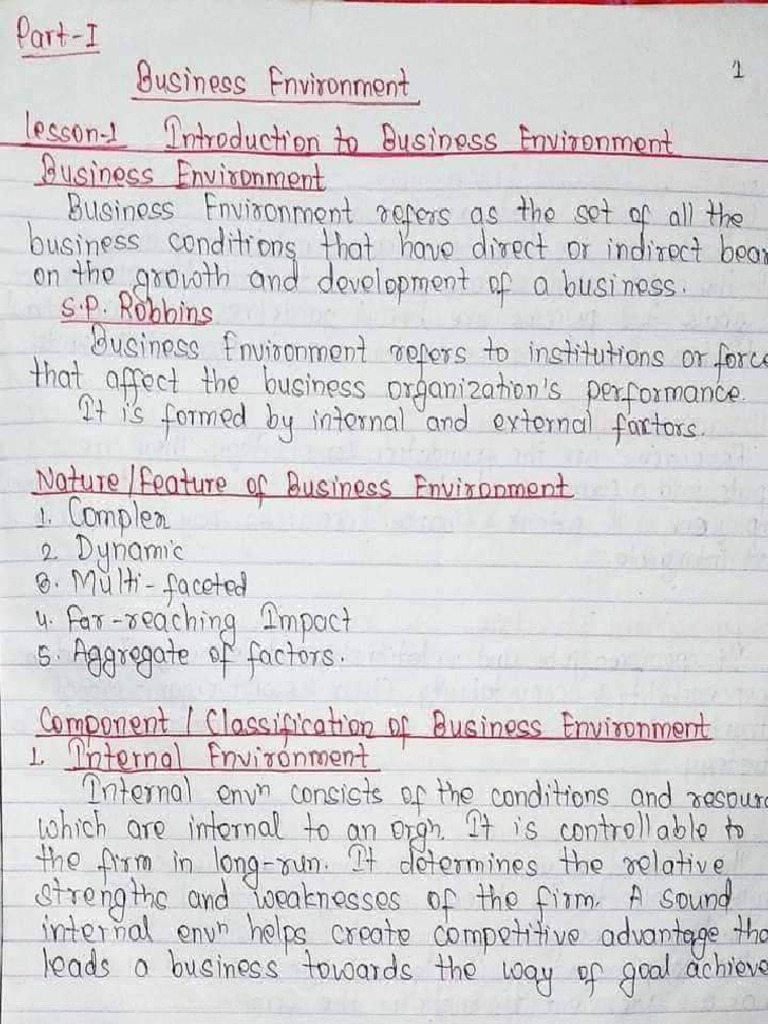 Part-I
1
Business Environment
lesson-1 Introduction to Business Environment
Business Environment
Business Environment refers as the set of all the
business conditions that have direct or indirect bear
on the growth and development of a business.
S.P. Robbins
Business Environment refers to institutions or force
that affect the business organization's performance.
It is formed by internal and external factors.
Nature/Feature of Business Environment
1. Complex
2. Dynamic
3. Multi-faceted
4. Far-reaching Impact
5. Aggregate of factors.
Component / Classification of Business Environment
1. Internal Environment
Internal envⁿ consists of the conditions and resour
which are internal to an orgⁿ. It is controllable to
the firm in long-run. It determines the relative
strengths and weaknesses of the firm. A sound
internal envⁿ helps create competitive advantage tha
leads a business towards the way of goal achieve